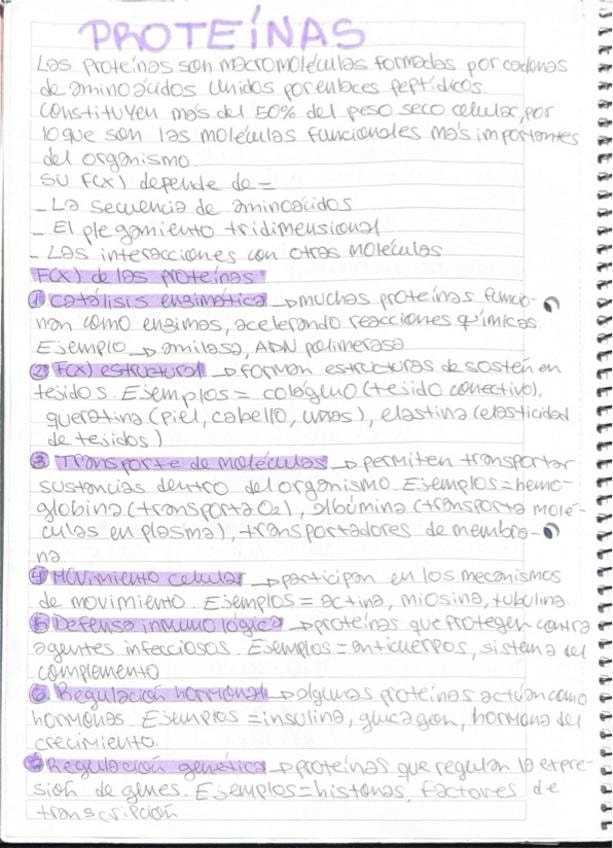 PROTEÍNAS
Las proteínas son macromoléculas formadas por cadenas
de aminoácidos unidos por enlaces peptídicos.
Constituyen más del 50% del peso seco celular, por
lo que son las moléculas funcionales más importantes
del organismo.
SU F(x) depende de =
- La secuencia de aminoácidos
- El plegamiento tridimensional
- Las interacciones con otras moléculas
F(x) de las proteínas
① Catálisis enzimática → muchas proteínas funcio-
nan como enzimas, acelerando reacciones químicas.
Ejemplo → amilasa, ADN polimerasa
② F(x) estructural → forman estructuras de sostén en
tejidos. Ejemplos = colágeno (tejido conectivo),
queratina (piel, cabello, uñas), elastina (elasticidad
de tejidos)
③ Transporte de moléculas → permiten transportar
sustancias dentro del organismo. Ejemplos = hemo-
globina (transporta O₂), albúmina (transporta molé-
culas en plasma), transportadores de membra-
na
④ Movimiento celular → participan en los mecanismos
de movimiento. Ejemplos = actina, miosina, tubulina
⑤ Defensa inmunológica → proteínas que protegen contra
agentes infecciosos. Ejemplos = anticuerpos, sistema del
complemento
⑥ Regulación hormonal → algunas proteínas actúan como
hormonas. Ejemplos = insulina, glucagon, hormona del
crecimiento.
⑦ Regulación genética → proteínas que regulan la expre-
sión de genes. Ejemplos = histonas, factores de
transcripción